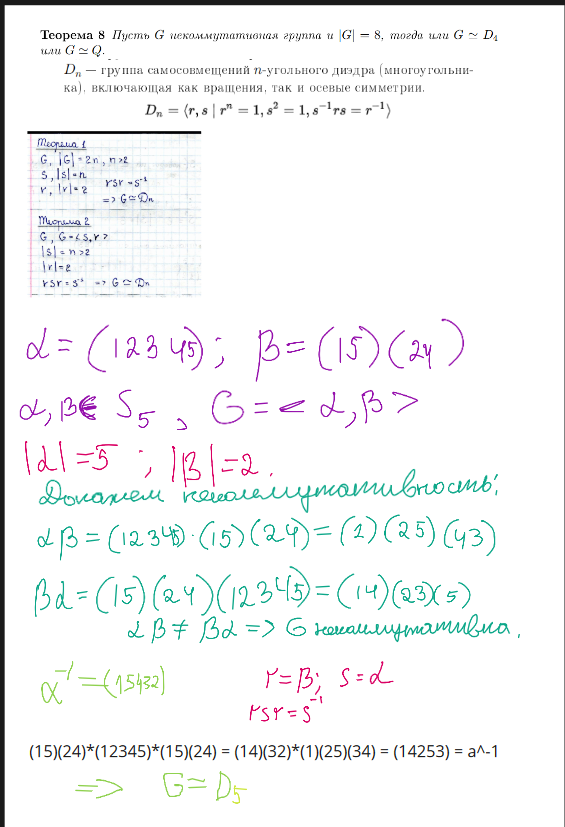 Теорема 8 Пусть G некоммутативная группа и |G| = 8, тогда или G ≃ D₄
или G ≃ Q.
Dₙ — группа самосовмещений n-угольного диэдра (многоугольни-
ка), включающая как вращения, так и осевые симметрии.
Dₙ = ⟨r, s | rⁿ = 1, s² = 1, s⁻¹rs = r⁻¹⟩
Теорема 1
G, |G| = 2n, n>2
s, |s| = n
r, |r| = 2 rsr = s⁻¹
=> G ≃ Dₙ
Теорема 2
G, G = <s, r>
|s| = n >2
|r| = 2
rsr = s⁻¹ => G ≃ Dₙ
α = (12345); β = (15)(24)
α, β ∈ S₅, G = <α, β>
|α| = 5; |β| = 2.
Докажем некоммутативность:
αβ = (12345)·(15)(24) = (1)(25)(43)
βα = (15)(24)(12345) = (14)(23)(5)
αβ ≠ βα => G некоммутативна.
α⁻¹ = (15432) r = β; s = α
rsr = s⁻¹
(15)(24)*(12345)*(15)(24) = (14)(32)*(1)(25)(34) = (14253) = a^-1
=> G ≃ D₅